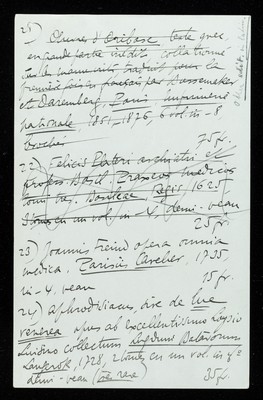 21) Œuvres d'Oribase texte grec,
en grande partie inédit, collationné
sur les manuscrits traduit pour la
première fois en français par Bussemaker
et Daremberg, Paris Imprimerie
nationale, 1851-1876, 6 vol. in-8
brochés
75 fr.
22) Felicis Plateri archiatri et
profess. Basil. Praxeos medicae
tomi tres. Basileae Regis, 1625
3 tomes en un vol. in-4, demi-veau
25 fr.
23) Joannis Freind opera omnia
medica, Parisiis Cavelier, 1735,
in-4, veau
15 fr.
24) Aphrodisiacus, sive de lue
venerea opus ab excellentissimo Aloysio
Luisino collectum Lugduni Batavorum
Langerak, 1728, 2 tomes en un vol. in f°
demi-veau (très rare)
35 fr.